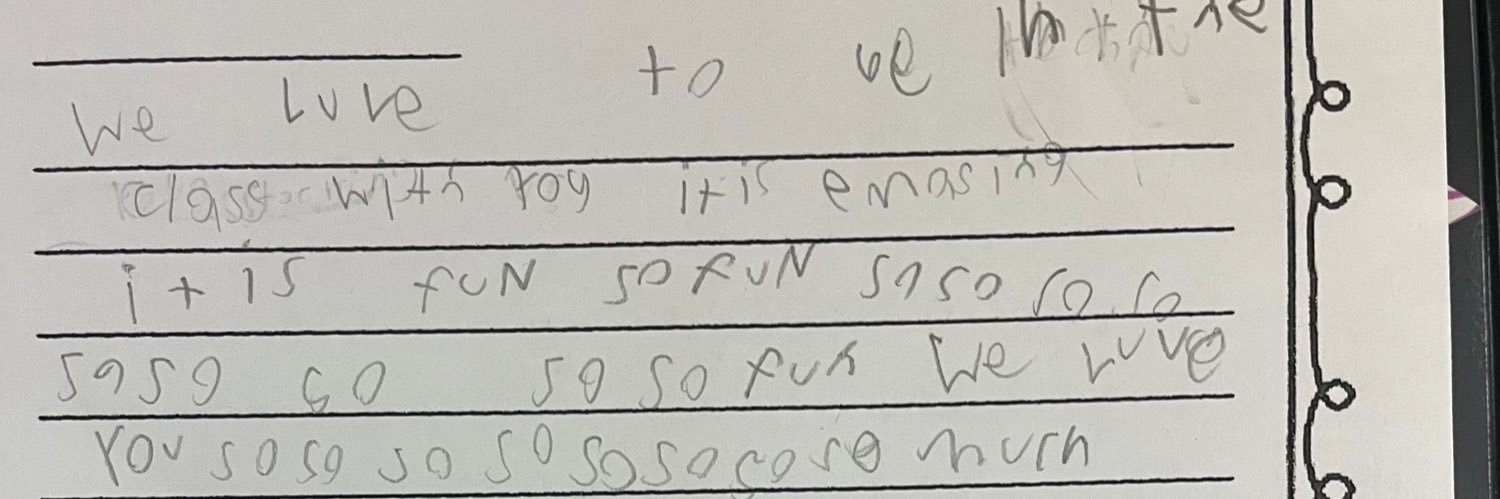 We Luve to ve in the
class with yoy it is emasing
it is fun so fun so so so so
so so so so so fun We Luve
You so so so so so so so so much